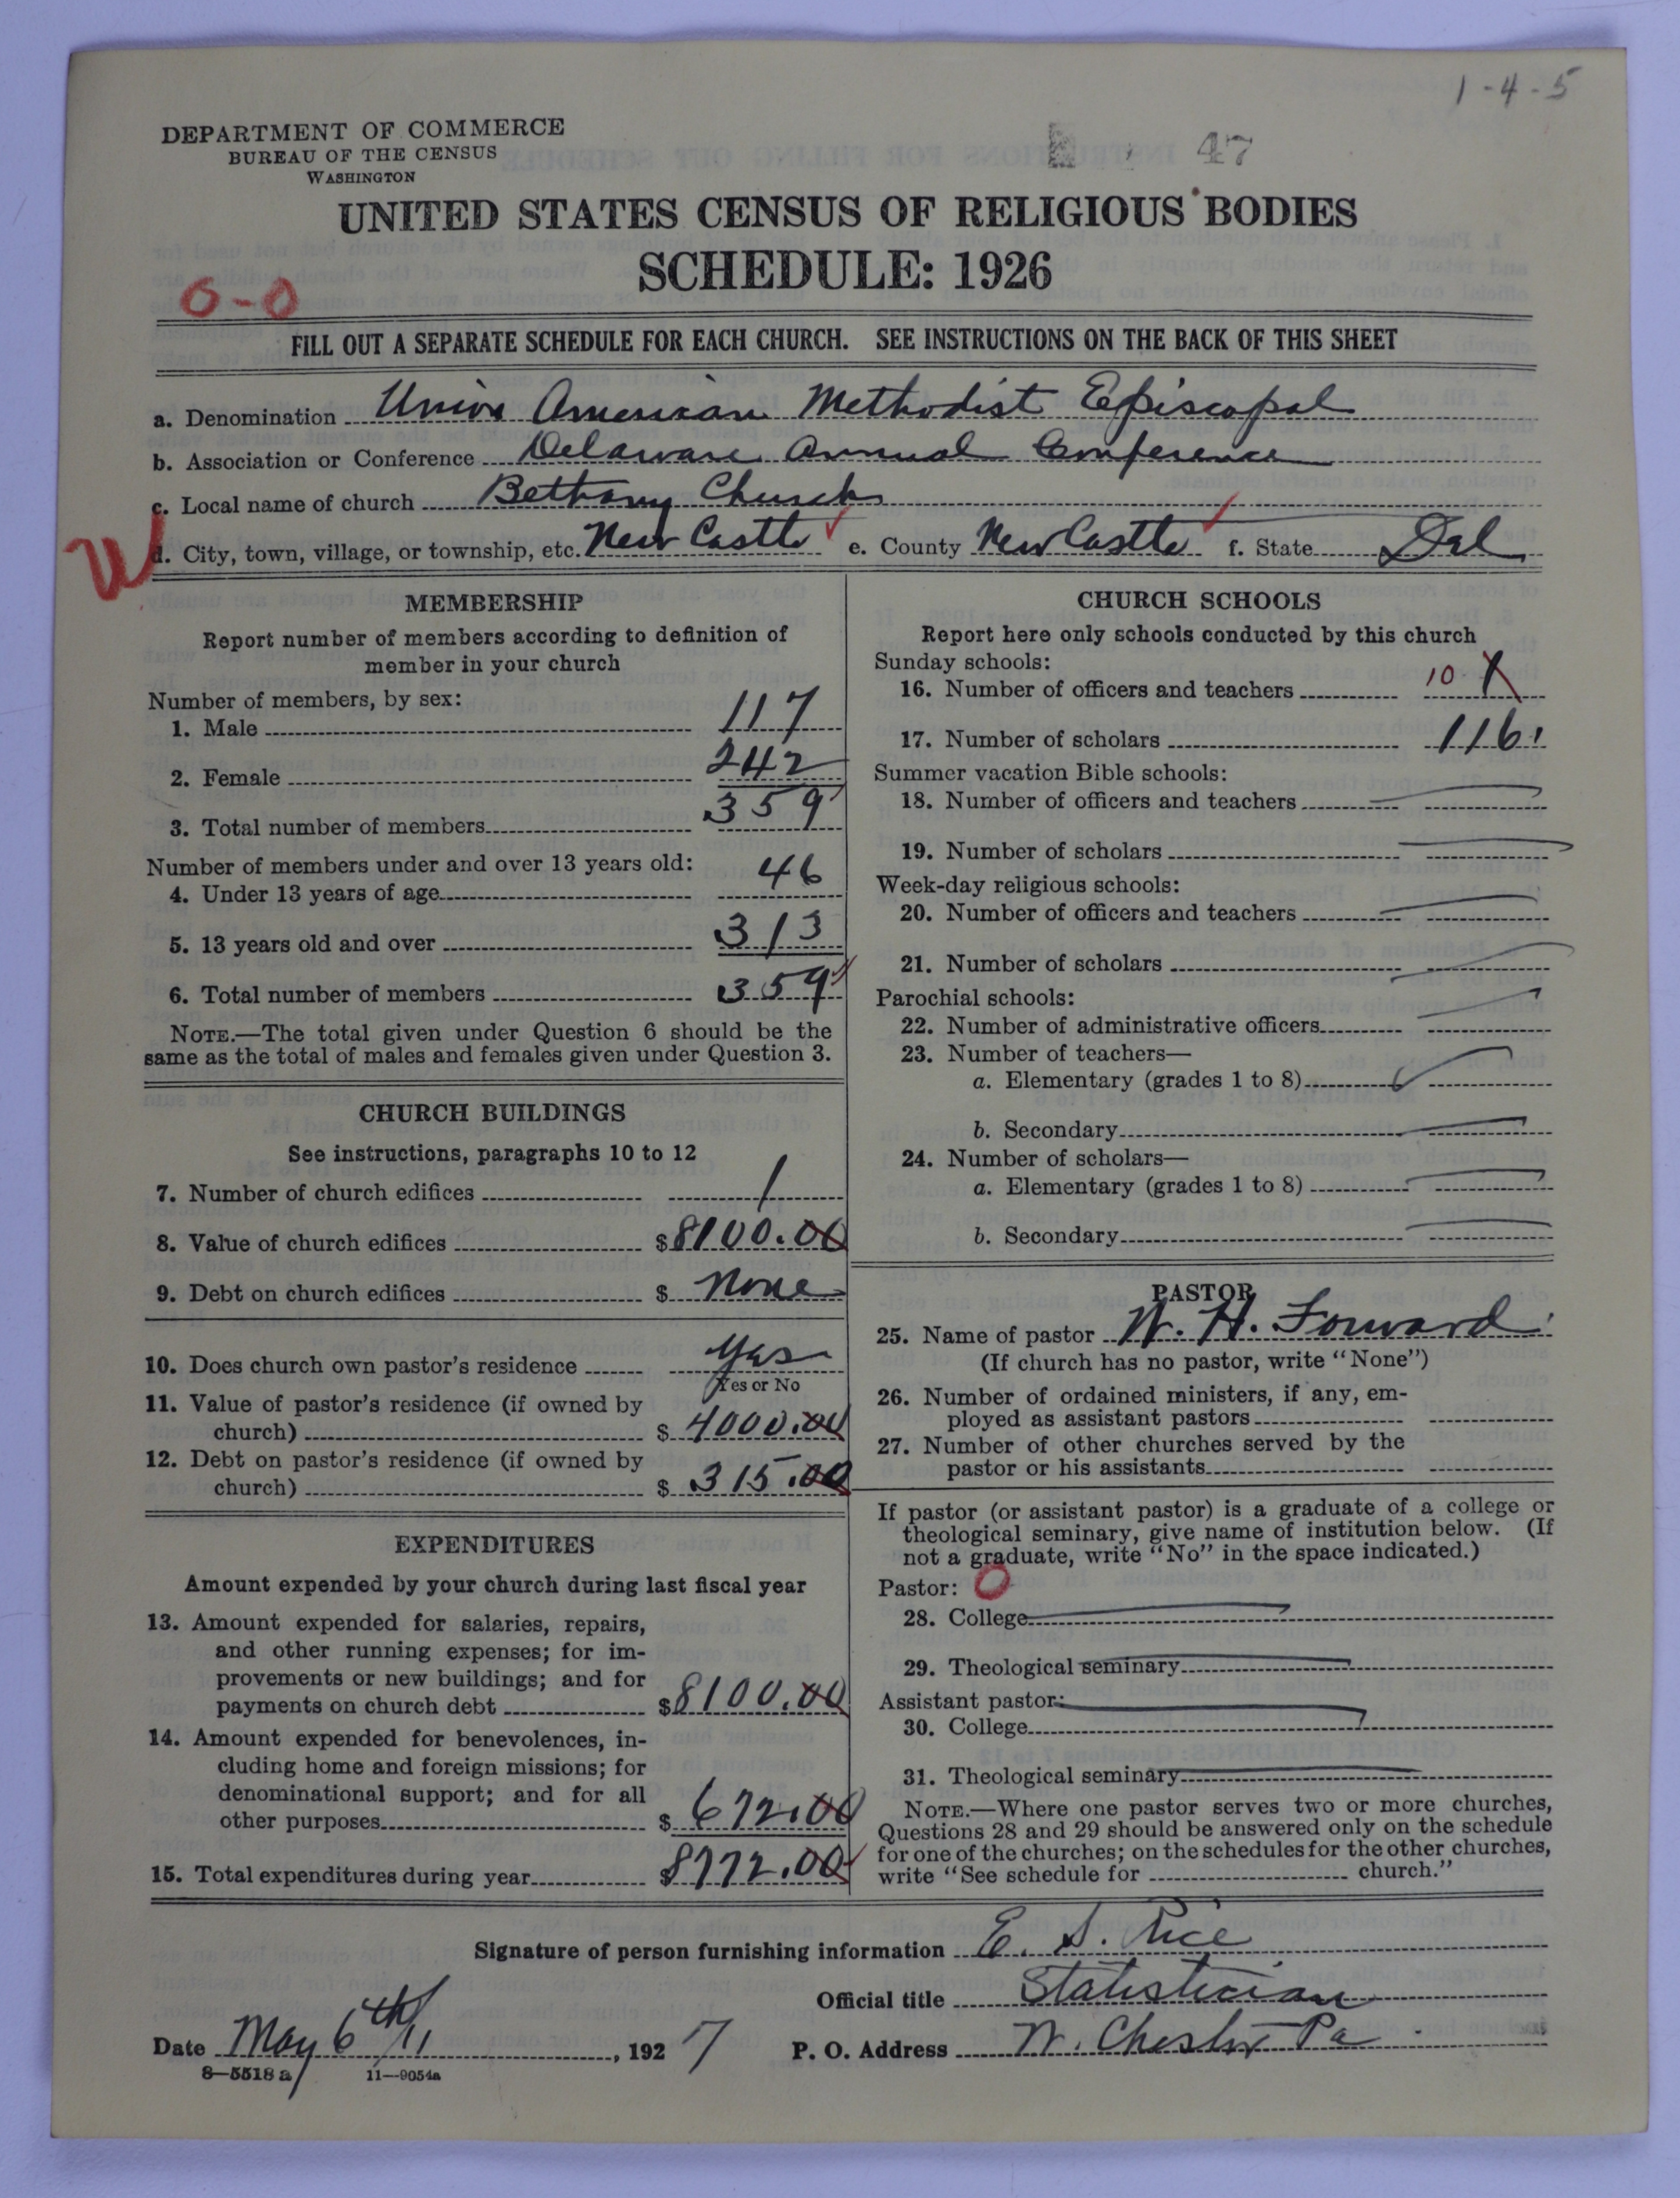 1-4-5
47
DEPARTMENT OF COMMERCE
BUREAU OF THE CENSUS
WASHINGTON
UNITED STATES CENSUS OF RELIGIOUS BODIES
SCHEDULE: 1926
0-0
FILL OUT A SEPARATE SCHEDULE FOR EACH CHURCH. SEE INSTRUCTIONS ON THE BACK OF THIS SHEET
a. Denomination Union American Methodist Episcopal
b. Association or Conference Delaware Annual Conference
c. Local name of church Bethany Church
W
d. City, town, village, or township, etc. New Castle e. County New Castle f. State Del
MEMBERSHIP
Report number of members according to definition of
member in your church
Number of members, by sex:
1. Male 117
2. Female 242
3. Total number of members 359
Number of members under and over 13 years old:
4. Under 13 years of age 46
5. 13 years old and over 313
6. Total number of members 359
NOTE.—The total given under Question 6 should be the
same as the total of males and females given under Question 3.
CHURCH BUILDINGS
See instructions, paragraphs 10 to 12
7. Number of church edifices 1
8. Value of church edifices $8100.00
9. Debt on church edifices $ None
10. Does church own pastor's residence Yes
Yes or No
11. Value of pastor's residence (if owned by
church) $ 4000.00
12. Debt on pastor's residence (if owned by
church) $ 315.00
EXPENDITURES
Amount expended by your church during last fiscal year
13. Amount expended for salaries, repairs,
and other running expenses; for im-
provements or new buildings; and for
payments on church debt $8100.00
14. Amount expended for benevolences, in-
cluding home and foreign missions; for
denominational support; and for all
other purposes $ 672.00
15. Total expenditures during year $8772.00
CHURCH SCHOOLS
Report here only schools conducted by this church
Sunday schools:
16. Number of officers and teachers 10
17. Number of scholars 116
Summer vacation Bible schools:
18. Number of officers and teachers
19. Number of scholars
Week-day religious schools:
20. Number of officers and teachers
21. Number of scholars
Parochial schools:
22. Number of administrative officers
23. Number of teachers—
a. Elementary (grades 1 to 8)
b. Secondary
24. Number of scholars—
a. Elementary (grades 1 to 8)
b. Secondary
PASTOR
25. Name of pastor W. H. Forward
(If church has no pastor, write "None")
26. Number of ordained ministers, if any, em-
ployed as assistant pastors
27. Number of other churches served by the
pastor or his assistants
If pastor (or assistant pastor) is a graduate of a college or
theological seminary, give name of institution below. (If
not a graduate, write "No" in the space indicated.)
Pastor: 0
28. College
29. Theological seminary
Assistant pastor:
30. College
31. Theological seminary
NOTE.—Where one pastor serves two or more churches,
Questions 28 and 29 should be answered only on the schedule
for one of the churches; on the schedules for the other churches,
write "See schedule for church."
Signature of person furnishing information E. S. Rice
Official title Statistician
Date May 6th/11, 1927 P. O. Address W. Chester Pa
8—5518 a 11—9054a